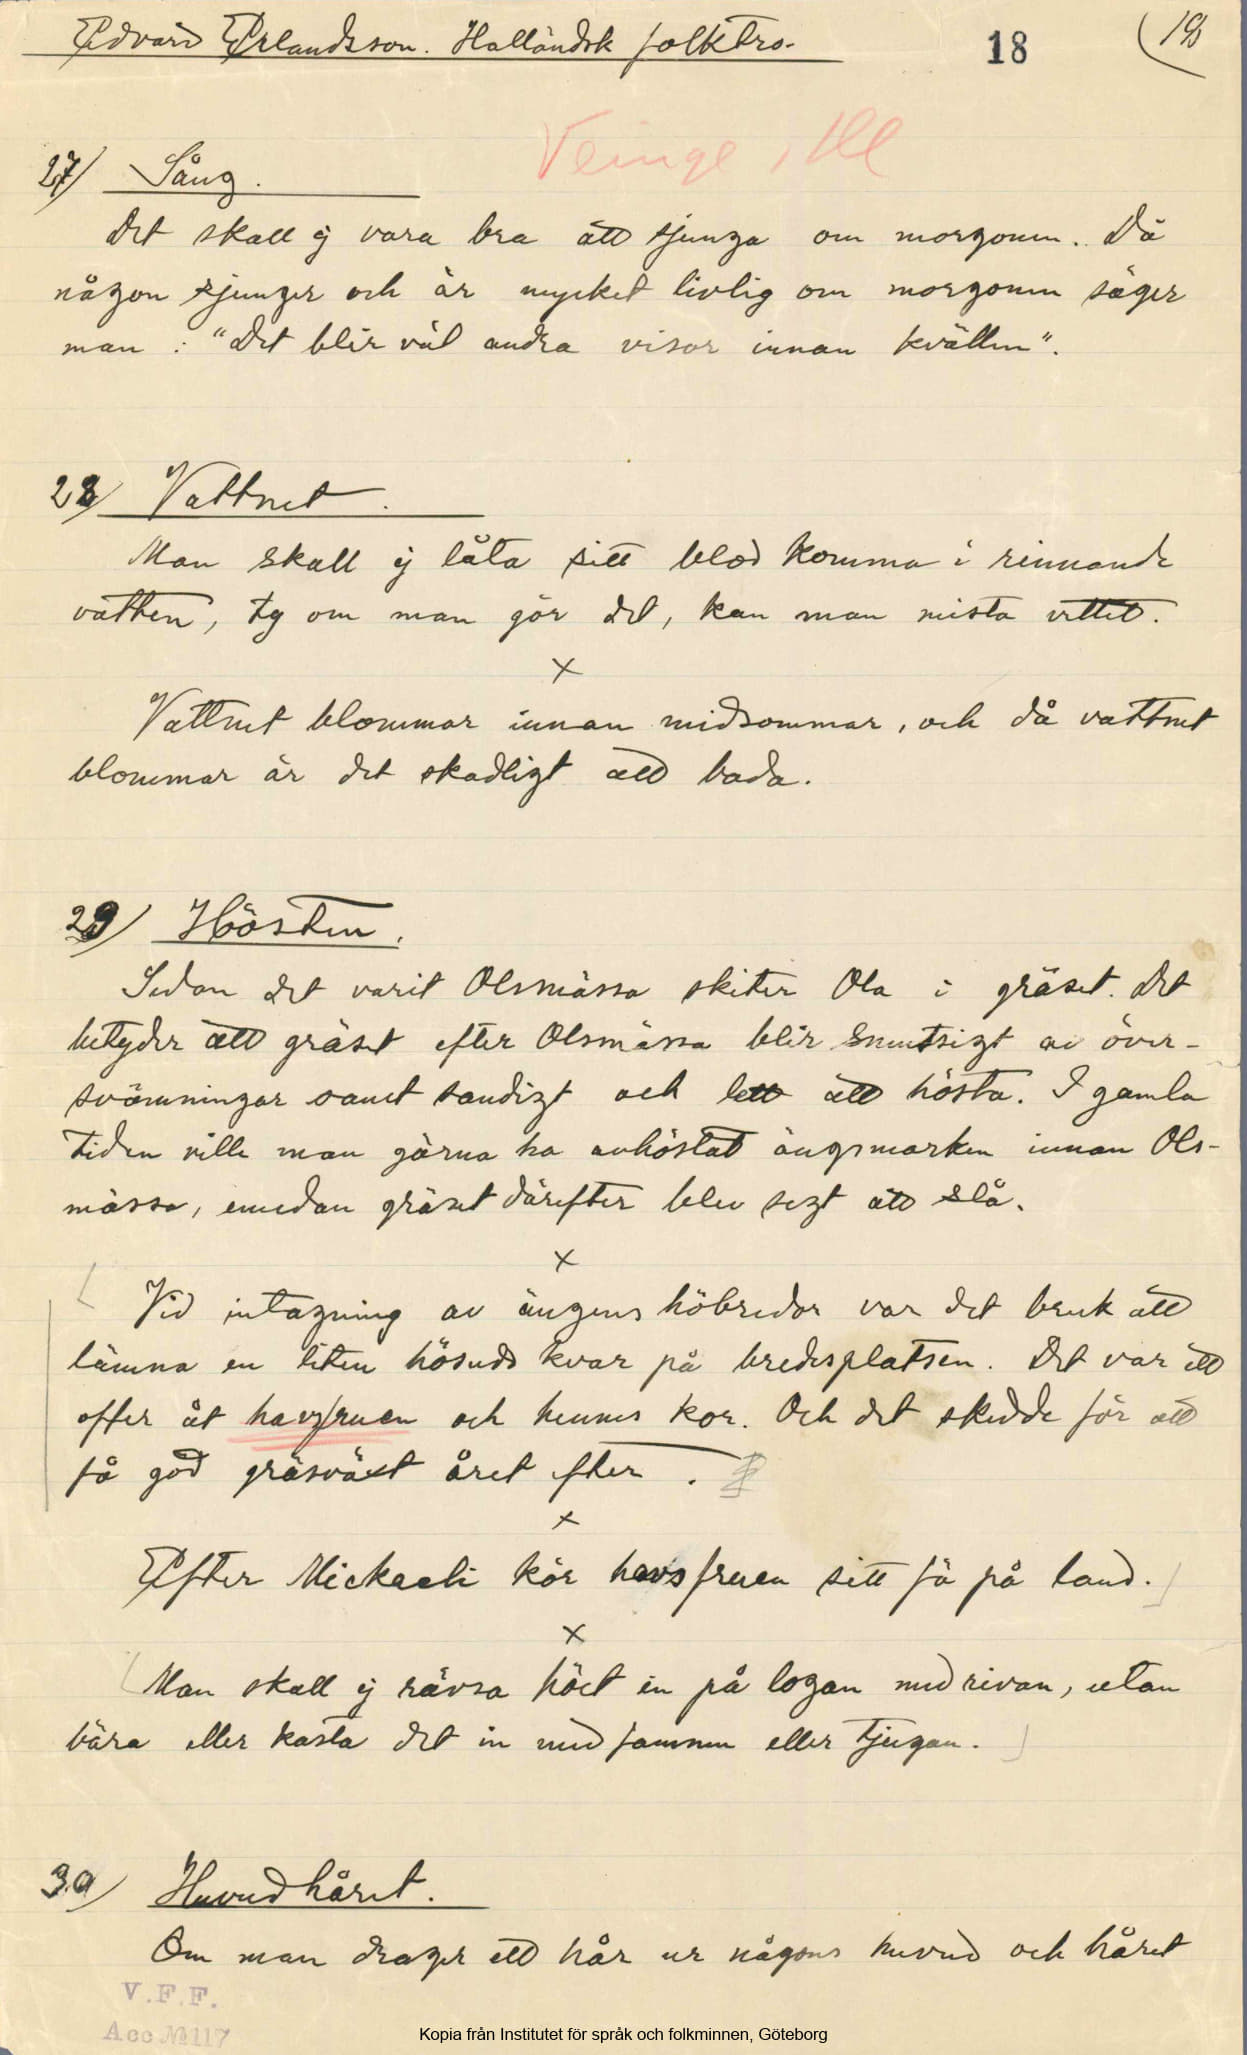 Edvard Erlandsson. Halländsk folktro.
18
Veinge, Hll
27/ Sång.
Det skall ej vara bra att sjunga om morgonen. Då
någon sjunger och är mycket livlig om morgonen säger
man: "Det blir väl andra visor innan kvällen".
28/ Vattnet.
Man skall ej låta sitt blod komma i rinnande
vatten, ty om man gör det, kan man mista vettet.
x
Vattnet blommar innan midsommar, och då vattnet
blommar är det skadligt att bada.
29/ Hösten.
Sedan det varit Olsmässa skiter Ola i gräset. Det
betyder att gräset efter Olsmässa blir smutsigt av över-
svämningar samt sandigt och lett att hösta. I gamla
tiden ville man gärna ha avhöstat ängsmarken innan Ols-
mässa, emedan gräset därefter blev segt att slå.
x
Vid intagning av ängens höbredor var det bruk att
lämna en liten hösudd kvar på bredesplatsen. Det var ett
offer åt havsfruen och hennes kor. Och det skedde för att
få god gräsväxt året efter.
x
Efter Mickaeli kör havsfruen sitt fä på land.
x
Man skall ej rävsa höet in på logan med rivan, utan
bära eller kasta det in med famnen eller tjugan.
30/ Huvudhåret.
Om man drager ett hår ur någons huvud och håret
V.F.F.
Acc № 117
Kopia från Institutet för språk och folkminnen, Göteborg